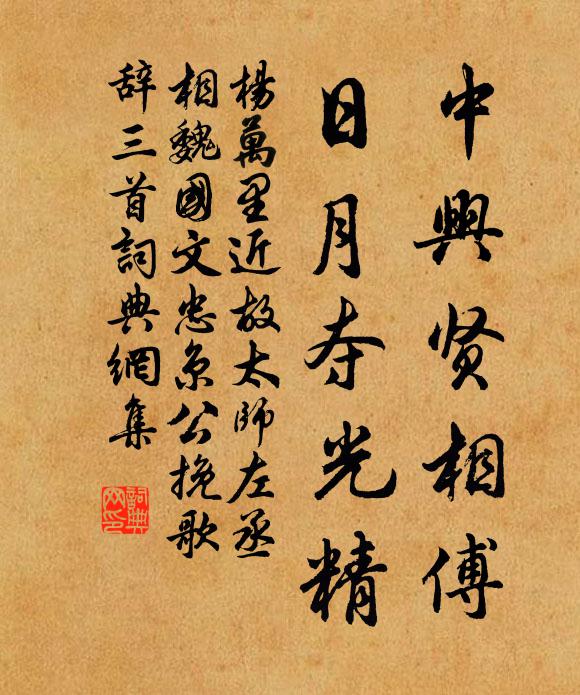 中興贤相傅
日月夺光精
楊萬里近故太師左丞
相魏國文忠京公挽歌
辞三首詞典網集
詞典网印